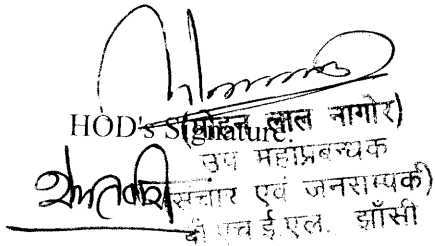 HOD's Signature.
(मोहन लाल नागोर)
उप महाप्रबन्धक
संचार एवं जनसम्पर्क)
बी एच ई.एल. झाँसी